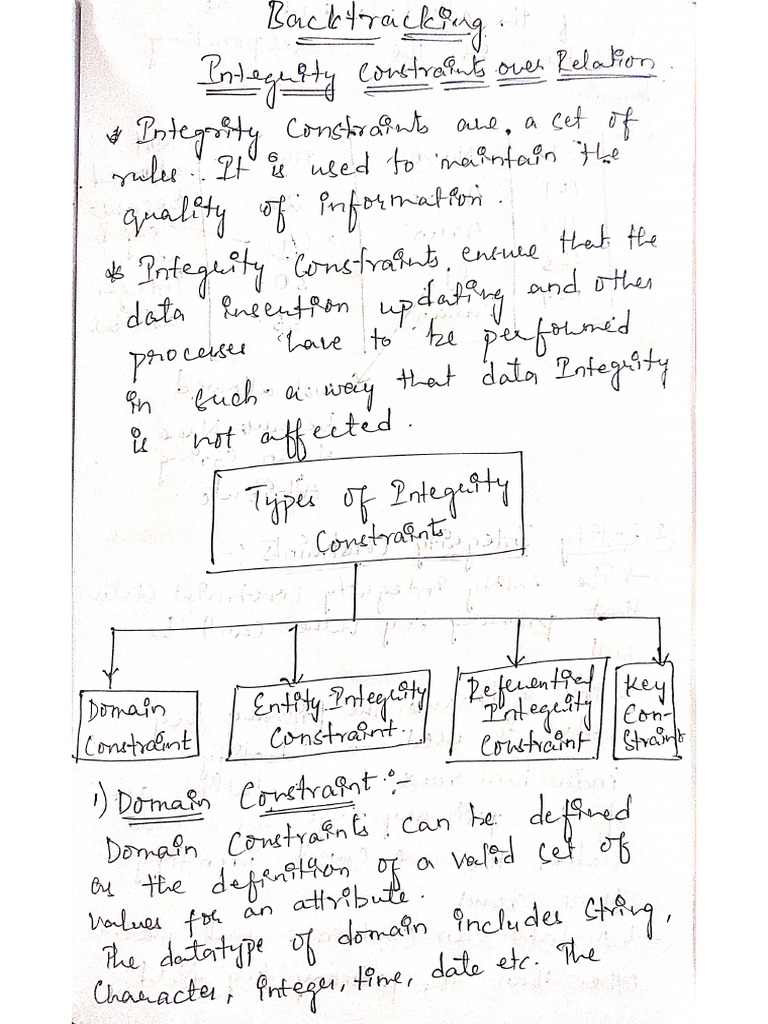 Backtracking.
Integrity Constraints over Relation.
* Integrity Constraints are, a set of
rules. It is used to maintain the
quality of information.
* Integrity Constraints, ensure that the
data insertion updating and other
processes have to be performed
in such a way that data Integrity
is not affected.
Types of Integrity
Constraints
Domain
Constraint
Entity Integrity
Constraint.
Referential
Integrity
Constraint
Key
Con-
straint
1) Domain Constraint :-
Domain Constraints can be defined
as the definition of a valid set of
values for an attribute.
The datatype of domain includes String,
Character, integer, time, date etc. The